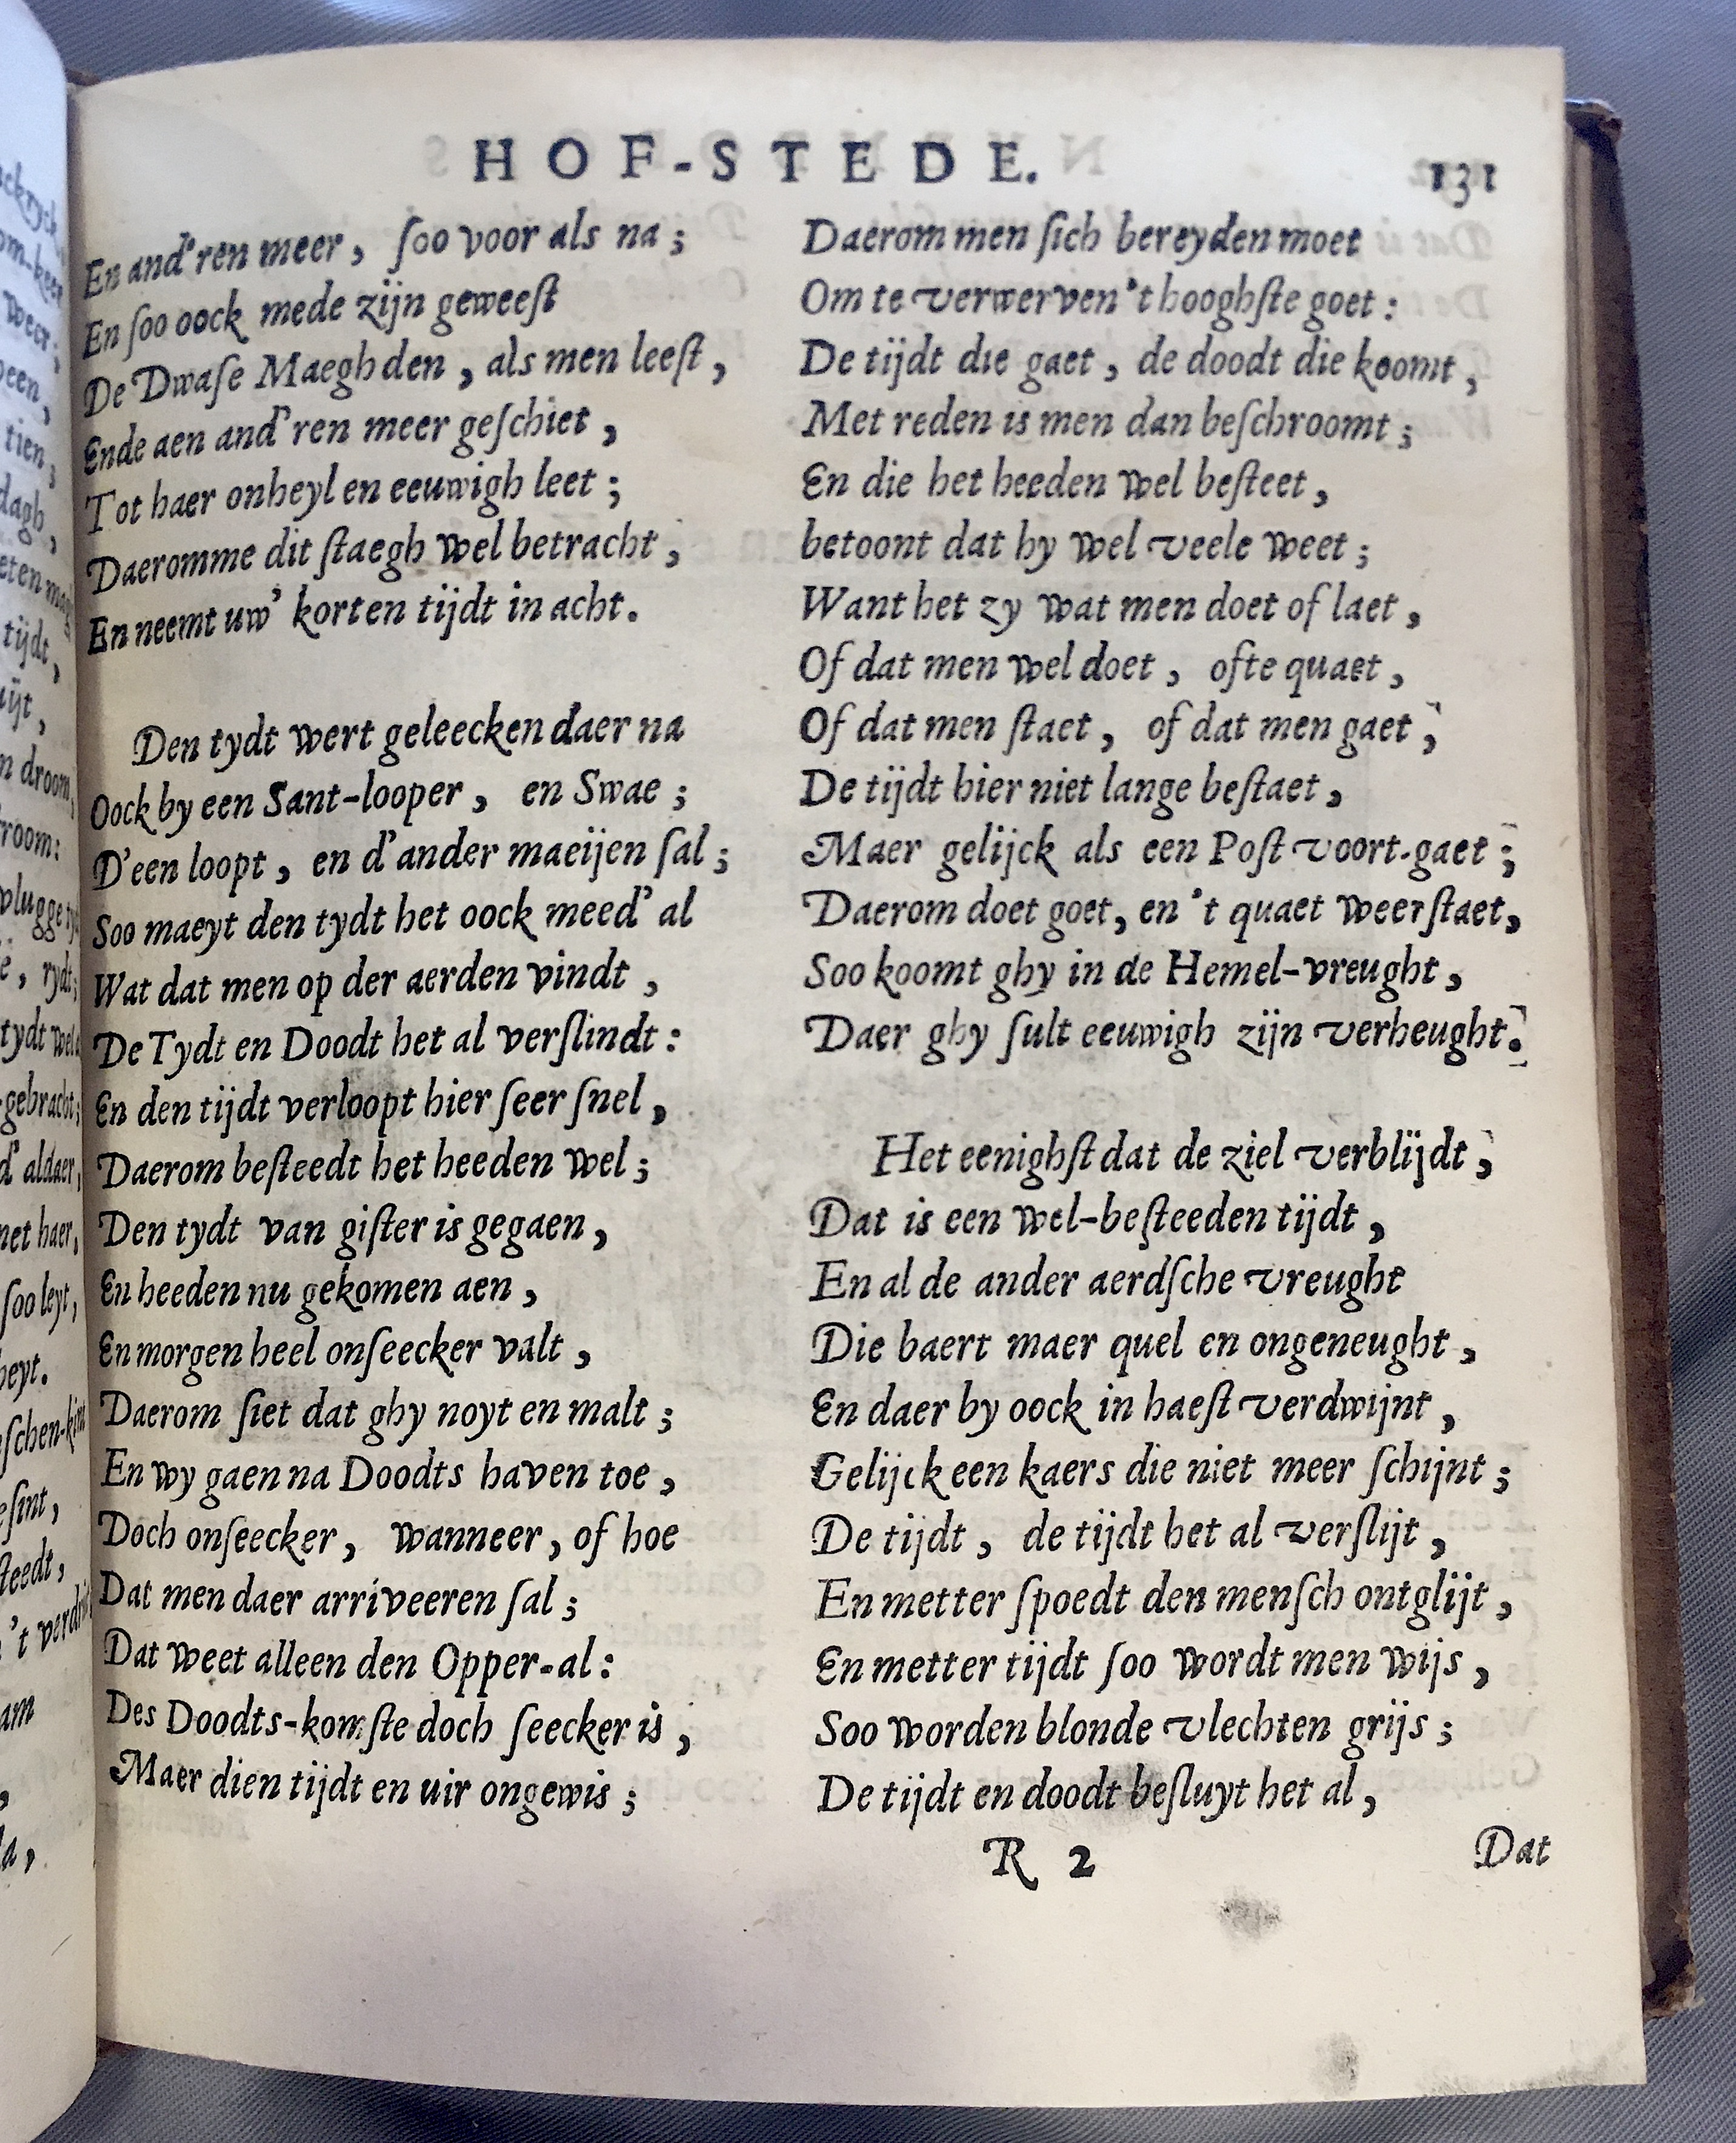 HOF-STEDE. 131
En and'ren meer, ſoo voor als na;
En ſoo oock mede zijn geweeſt
De Dwaſe Maeghden, als men leeſt,
Ende aen and'ren meer geſchiet,
Tot haer onheyl en eeuwigh leet;
Daeromme dit ſtaegh wel betracht,
En neemt uw' korten tijdt in acht.
Den tydt wert geleecken daer na
Oock by een Sant-looper, en Swae;
D'een loopt, en d'ander maeijen ſal;
Soo maeyt den tydt het oock meed' al
Wat dat men op der aerden vindt,
De Tydt en Doodt het al verſlindt:
En den tijdt verloopt hier ſeer ſnel,
Daerom beſteedt het heeden wel;
Den tydt van giſter is gegaen,
En heeden nu gekomen aen,
En morgen heel onſeecker valt,
Daerom ſiet dat ghy noyt en malt;
En wy gaen na Doodts haven toe,
Doch onſeecker, wanneer, of hoe
Dat men daer arriveeren ſal;
Dat weet alleen den Opper-al:
Des Doodts-komſte doch ſeecker is,
Maer dien tijdt en uir ongewis;
Daerom men ſich bereyden moet
Om te verwerven 't hooghſte goet:
De tijdt die gaet, de doodt die koomt,
Met reden is men dan beſchroomt;
En die het heeden wel beſteet,
betoont dat hy wel veele weet;
Want het zy wat men doet of laet,
Of dat men wel doet, ofte quaet,
Of dat men ſtaet, of dat men gaet,
De tijdt hier niet lange beſtaet,
Maer gelijck als een Poſt voort-gaet;
Daerom doet goet, en 't quaet weerſtaet,
Soo koomt ghy in de Hemel-vreught,
Daer ghy ſult eeuwigh zijn verheught.
Het eenighſt dat de ziel verblijdt,
Dat is een wel-beſteeden tijdt,
En al de ander aerdſche vreught
Die baert maer quel en ongeneught,
En daer by oock in haeſt verdwijnt,
Gelijck een kaers die niet meer ſchijnt;
De tijdt, de tijdt het al verſlijt,
En metter ſpoedt den menſch ontglijt,
En metter tijdt ſoo wordt men wijs,
Soo worden blonde vlechten grijs;
De tijdt en doodt beſluyt het al,
R 2 Dat